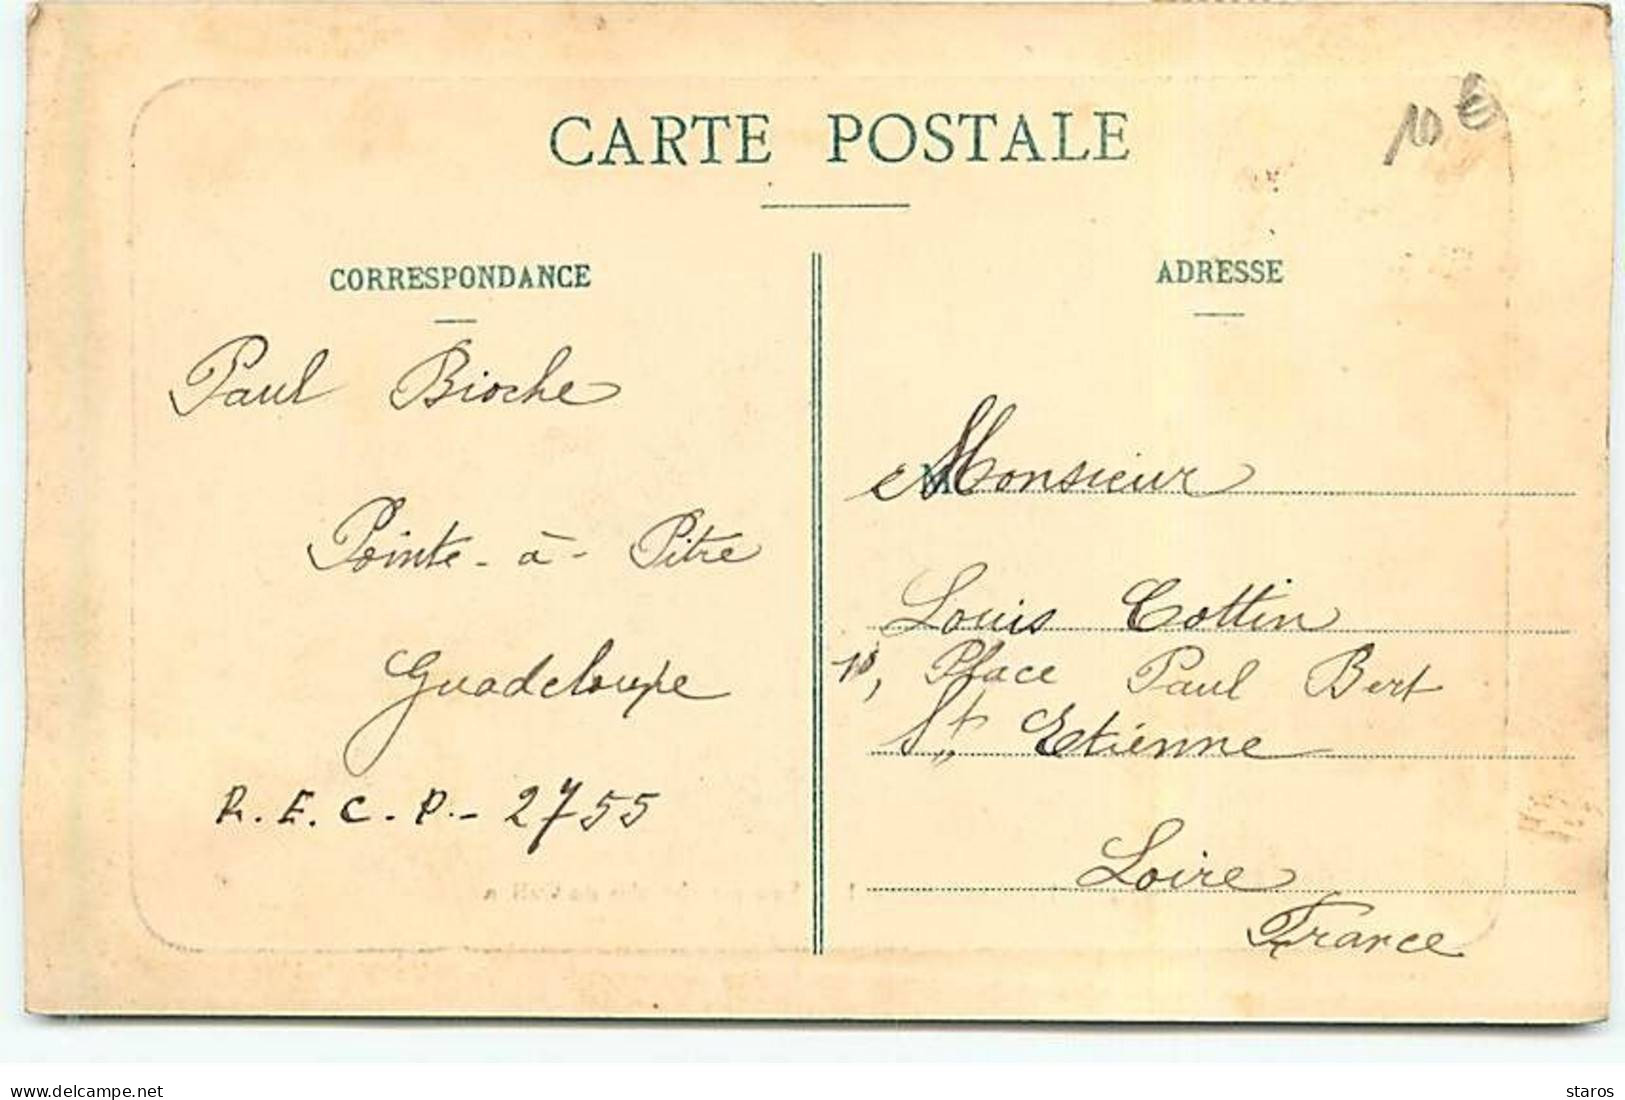 CARTE POSTALE
10 €
CORRESPONDANCE
Paul Bioche
Pointe-à-Pitre
Guadeloupe
R.E.C.P.- 2755
ADRESSE
Monsieur
Louis Cottin
10, Place Paul Bert
St Etienne
Loire
France
www.delcampe.net
staros